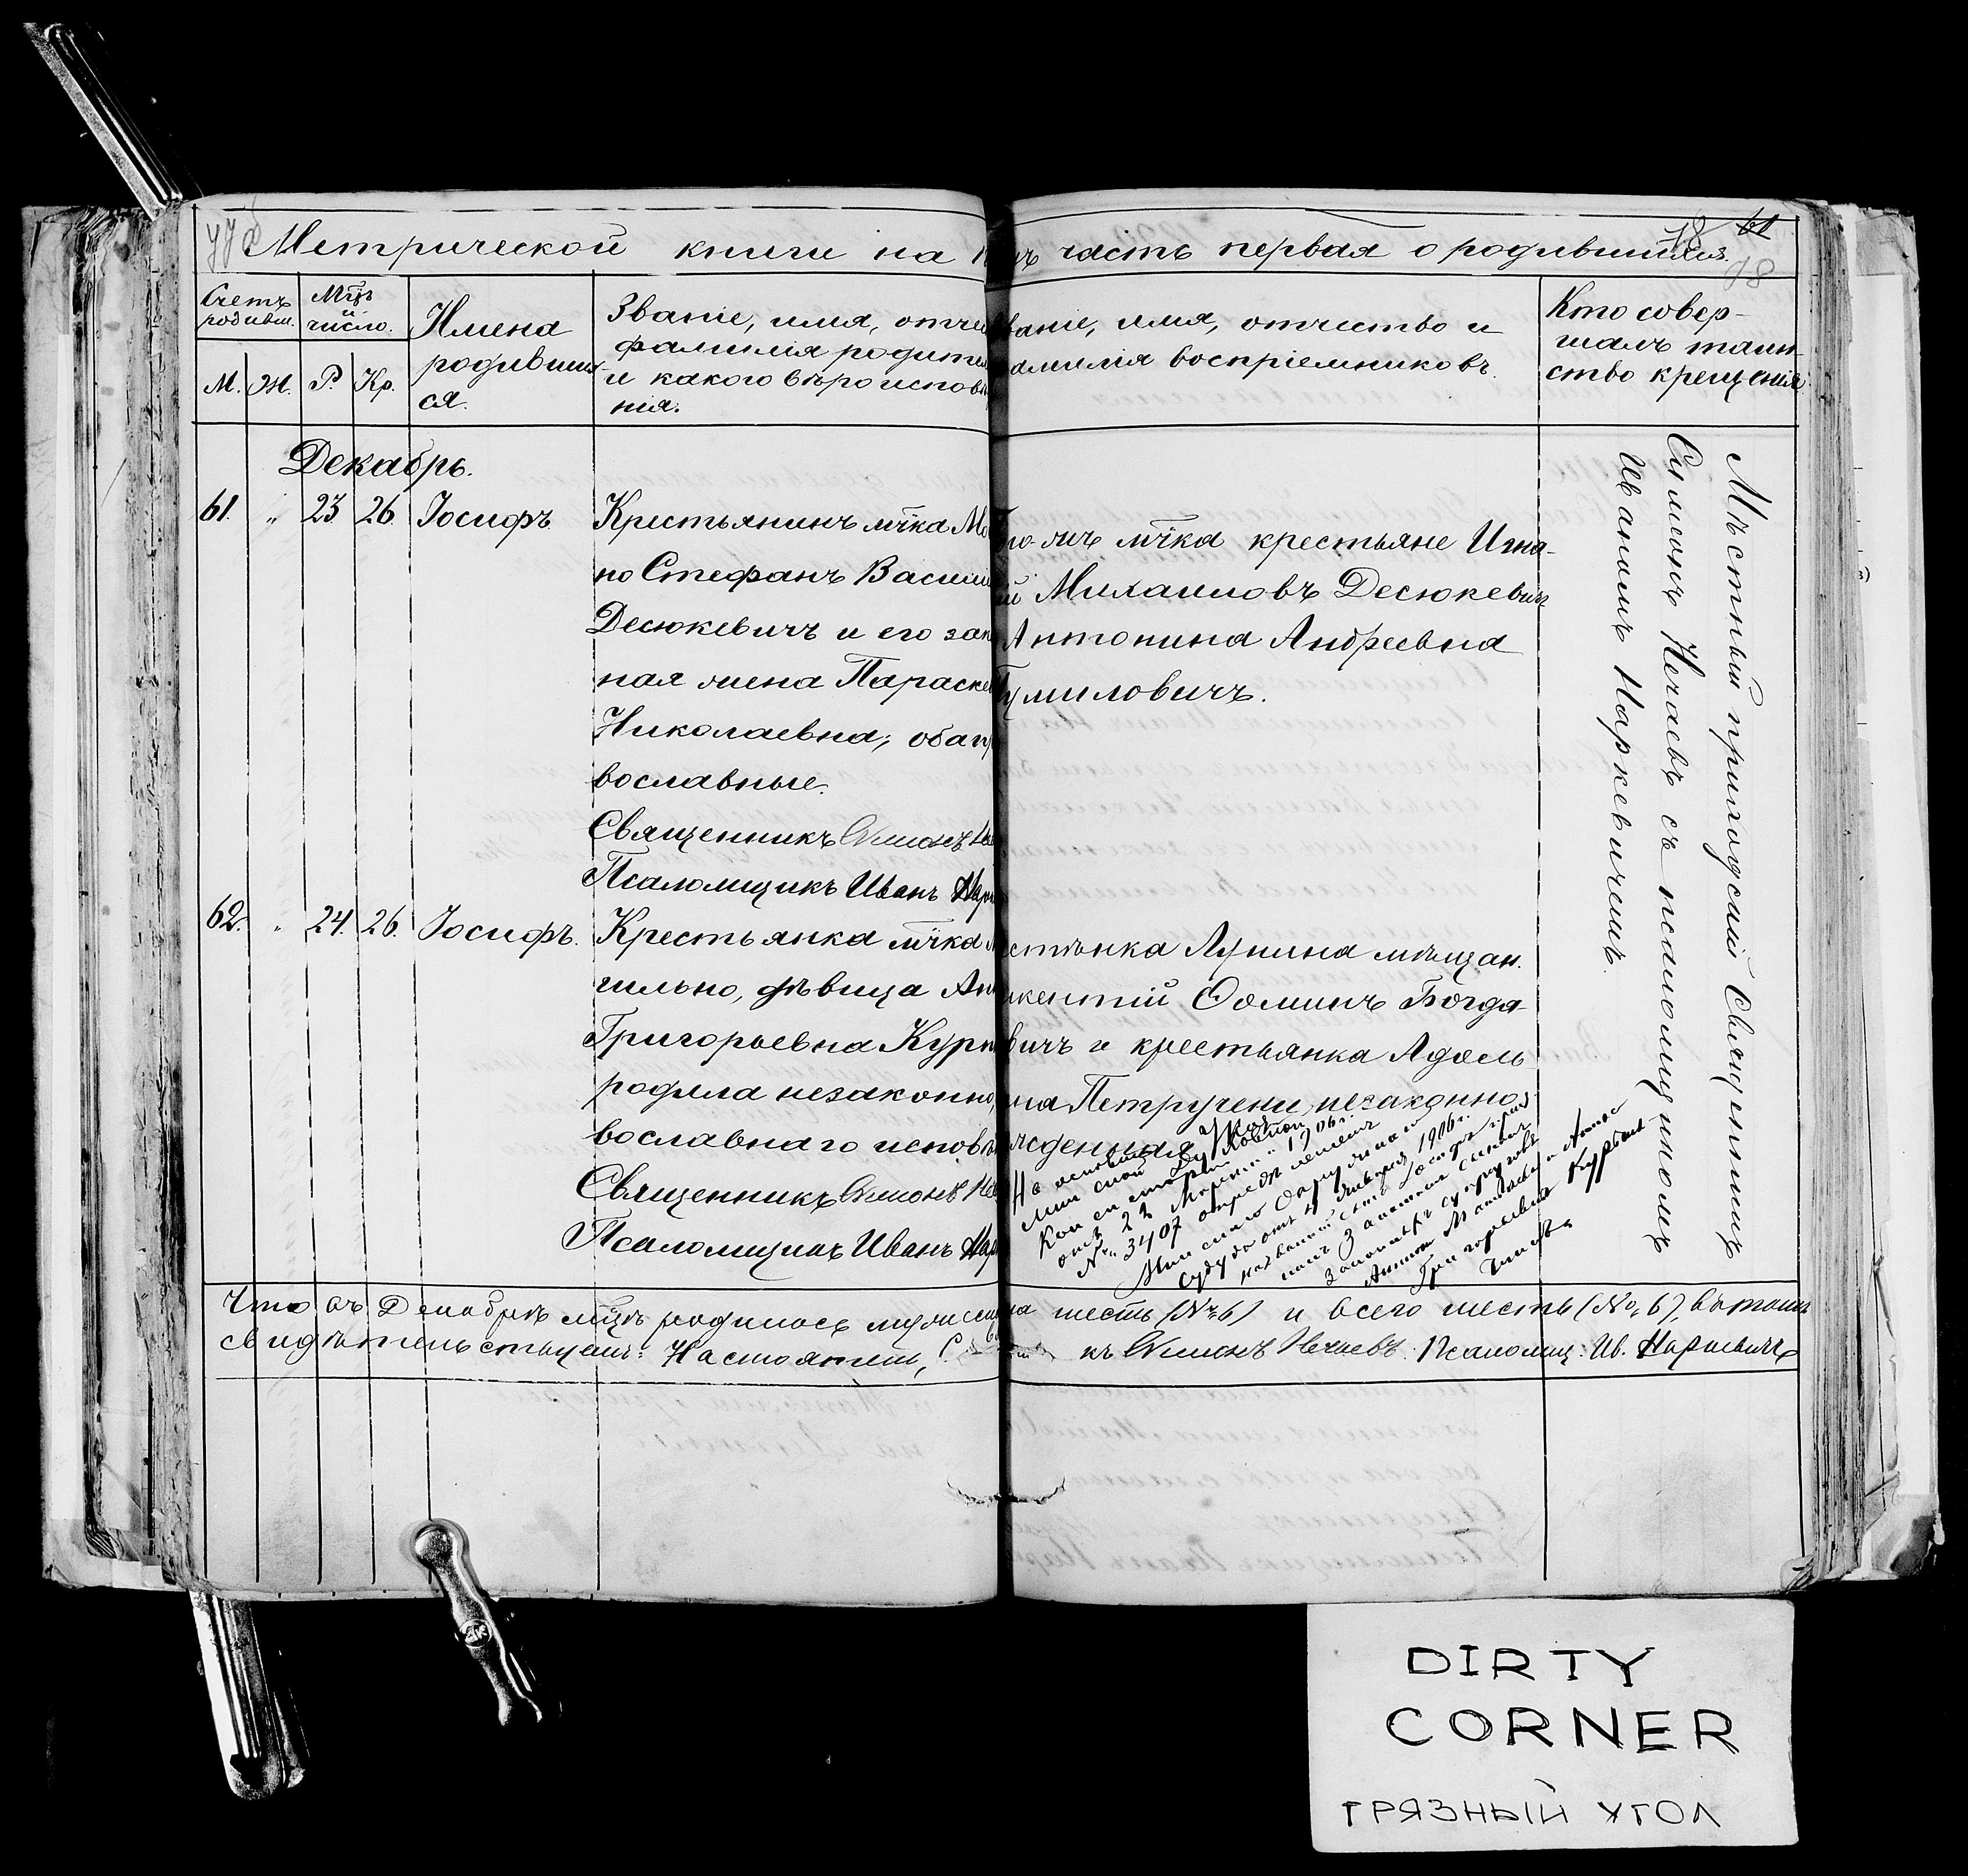 Метрической книги на
часть первая о родившихся.
61
78
Счетъ родивш.
Мцъ и число.
М. Ж. Р. Кр.
Имена
родивших-
ся.
Званіе, имя, отче
фамилія родите
и какого вѣроисповѣ
нія.
ваніе, имя, отчество и
амилія воспріемниковъ.
Кто совер-
шалъ таин-
ство крещенія
Декабрь.
61. " 23. 26. Іосифъ.
Крестьянинъ мѣчка Мо
но Стефанъ Васили
Десюкевичъ и его зак
ная жена Параске
Николаевна; оба пр
вославные.
Священникъ Симонъ Не
Псаломщикъ Иванъ Нар
го-жъ мѣчка крестьяне Игна-
ій Михаиловъ Десюкевичъ
Антонина Андреевна
Гумиловичъ.
Мѣстный приходскій Священникъ
Симеонъ Нечаевъ съ псаломщикомъ
Иваномъ Наркевичемъ.
62. " 24. 26. Іосифъ.
Крестьянка мѣчка
чильно, дѣвица Ан
Григорьевна Курп
родила незаконно,
вославнаго исповѣ
Священникъ Симонъ Не
Псаломщикъ Иванъ Нар
стѣнка Лунина мѣщан.
кентій Ѳоминъ Богда-
вичъ и крестьянка Адоль
на Петручени, незаконно-
жденная
На основаніи Указа
Минской Духовной
Консисторіи
отъ 22 Марта 1906 г.
№ 3407 опредѣленіемъ
Минскаго Окружнаго
Суда отъ 4 Января 1906 г.
названный сынъ Іосифъ приз
нанъ законнымъ сыномъ
законныхъ супруговъ
Антона Матвѣева и Анны
Григорьевны Курпат
Что въ Декабрѣ мцѣ родилось мужеска
на шесть (№ 6) и всего шесть (№ 6), въ томъ
свидѣтельствуемъ: Настоятель, С
къ Симонъ Нечаевъ. Псаломщ: Ив. Наркевичъ
DIRTY
CORNER
ГРЯЗНЫЙ УГОЛ